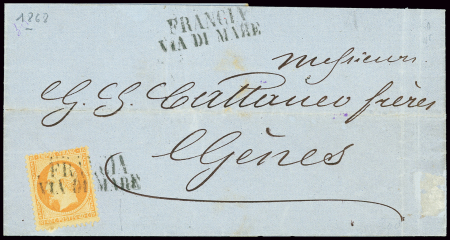 1262
FRANCIA
VIA DI MARE
Messieurs
G. G. Cattaneo frères
Gênes
FRANCIA
VIA DI MARE